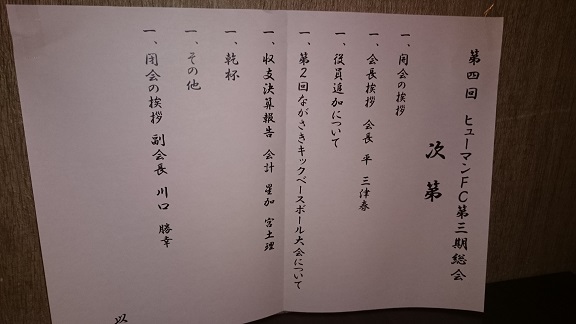 第四回 ヒューマンFC第三期総会
次第
一、開会の挨拶
一、会長挨拶 会長 平 三津春
一、役員追加について
一、第2回ながさきキックベースボール大会について
一、収支決算報告 会計 星加 宮土理
一、乾杯
一、その他
一、閉会の挨拶 副会長 川口 勝幸
以